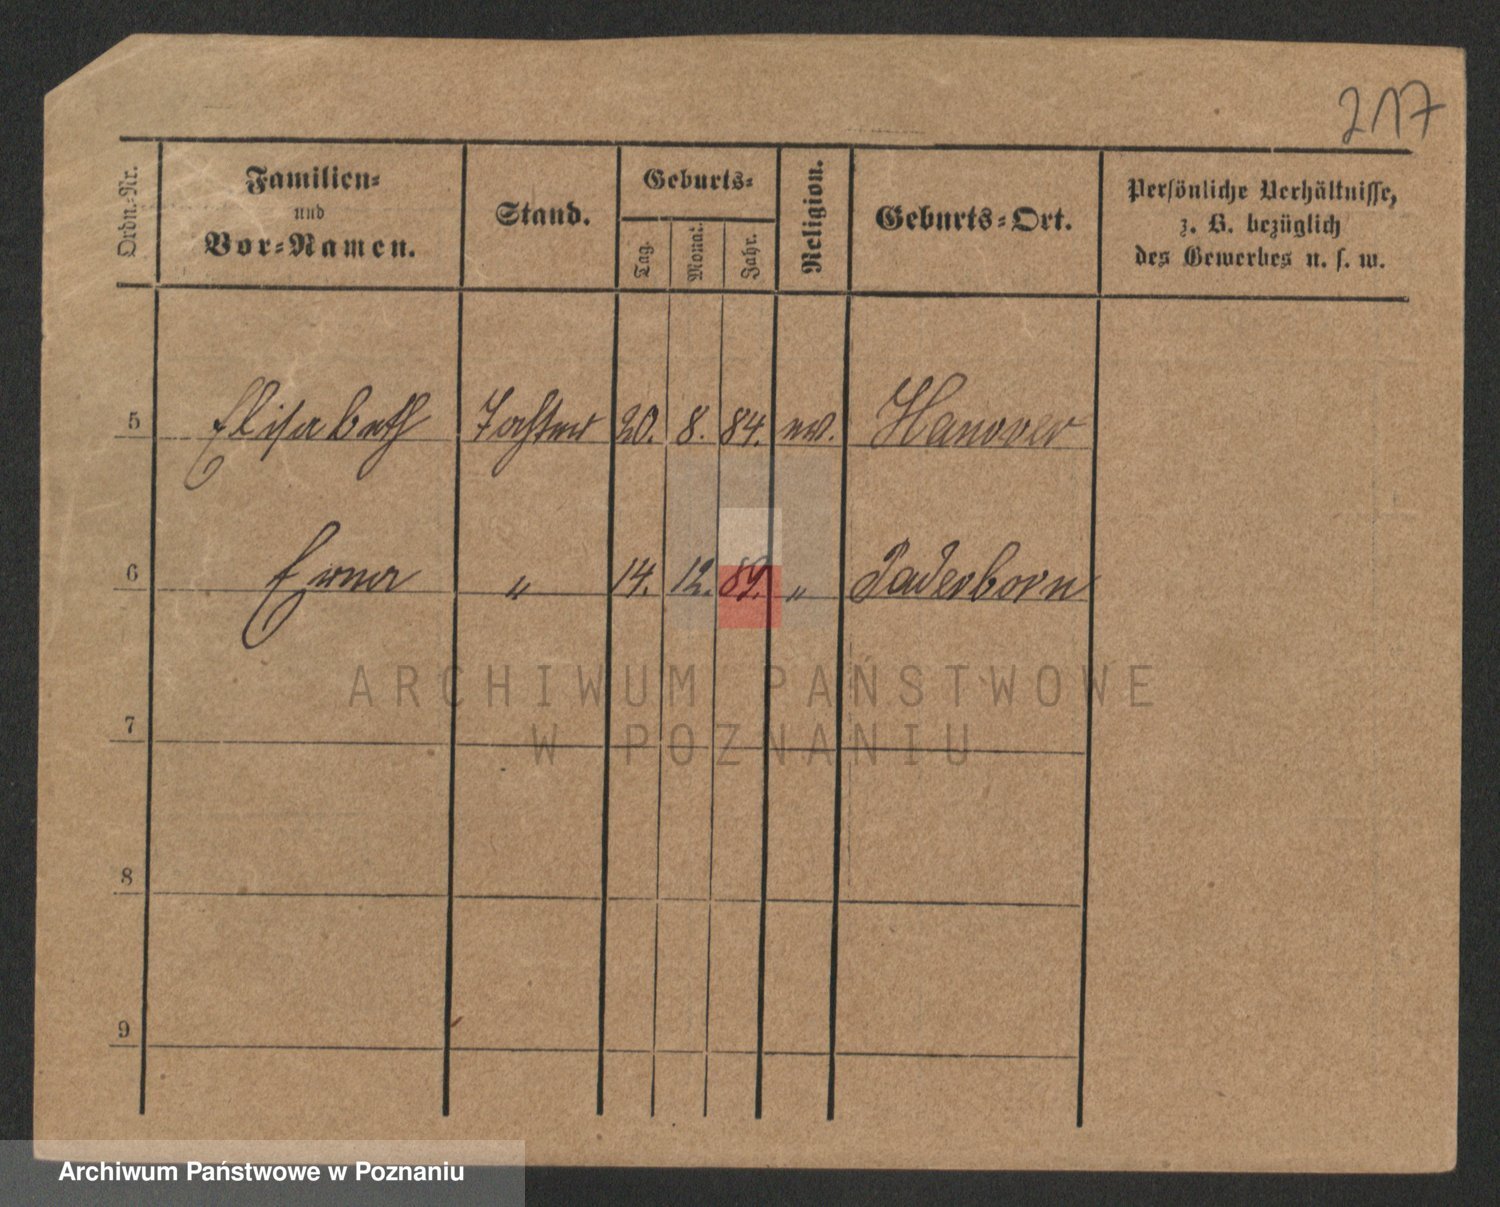 217
Ordn.-Nr.
Familien-
und
Vor-Namen.
Stand.
Geburts-
Tag.
Monat.
Jahr.
Religion.
Geburts-Ort.
Persönliche Verhältnisse,
z. B. bezüglich
des Gewerbes u. s. w.
5 Elisabeth Tochter 20. 8. 84. ev. Hanover
6 Erna " 14. 12. 89. " Paderborn
7
8
9
ARCHIWUM PAŃSTWOWE
W POZNANIU
Archiwum Państwowe w Poznaniu